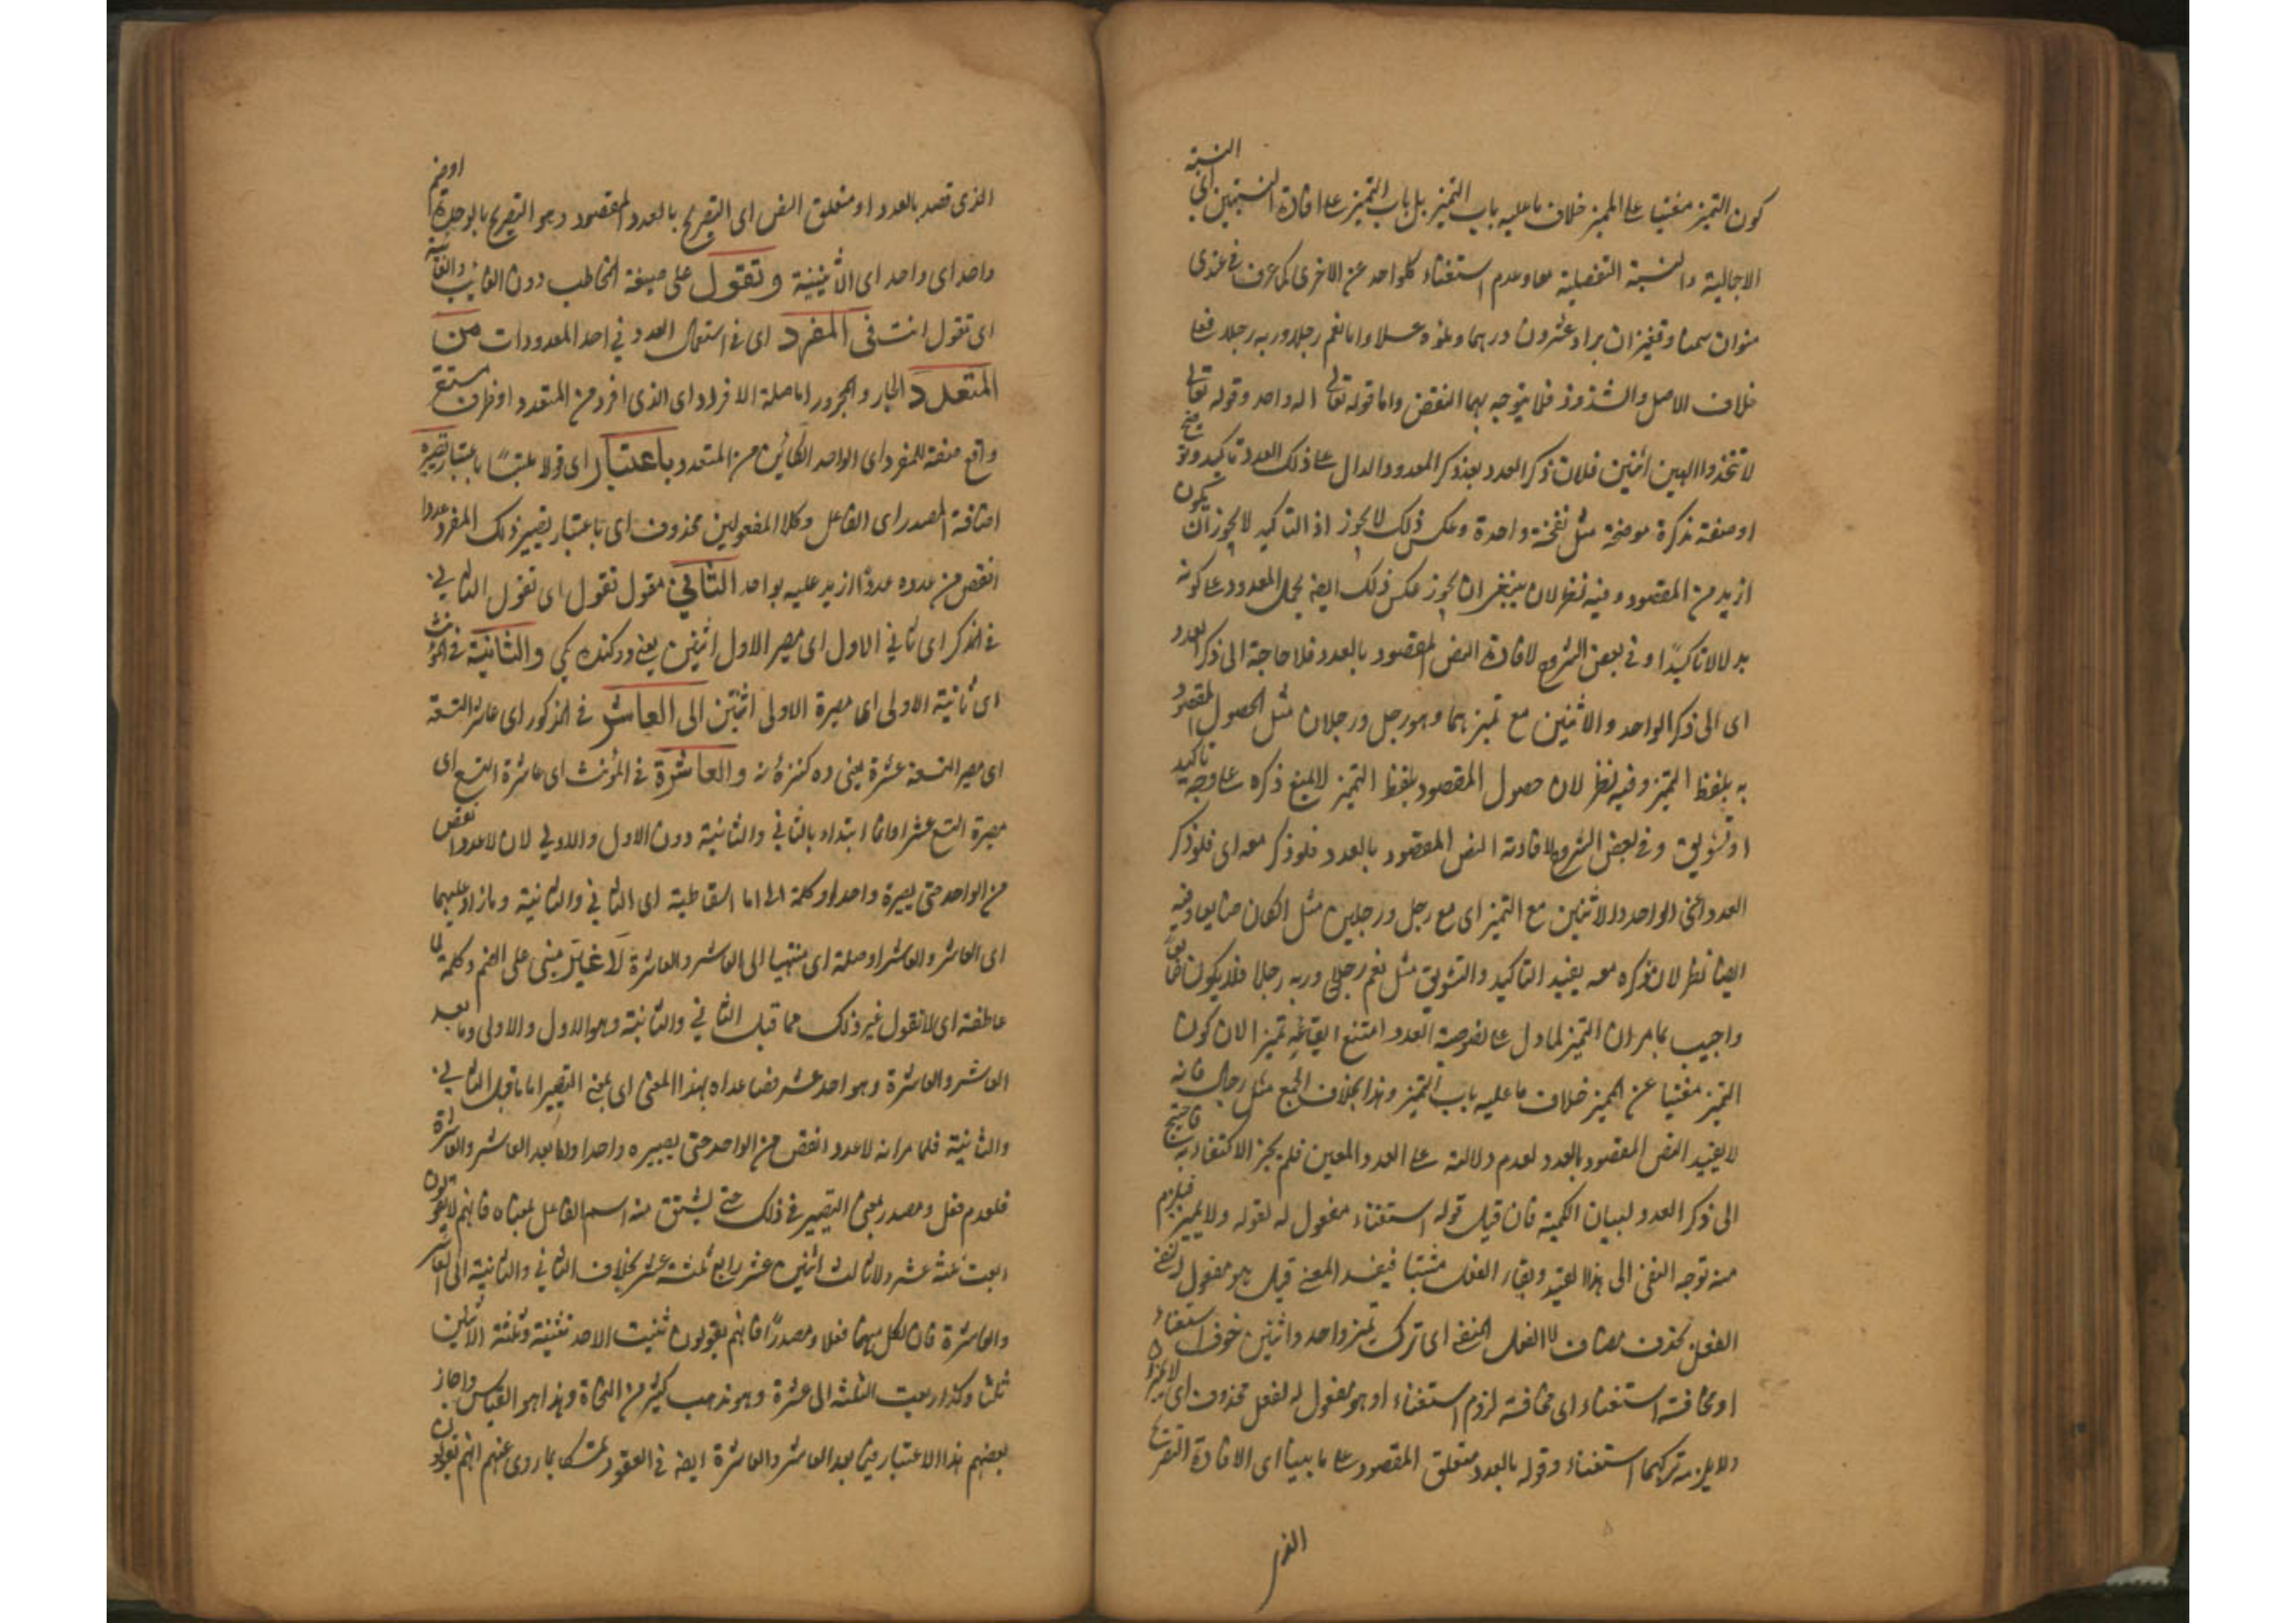 كون التميز مغنيا عن المميز خلاف ما عليه باب التميز بل باب التميز على افادة النسبتين اى النسبة
الاجمالية والنسبة التفصيلية معا وعدم استغناء كلواحد عن الاخرى كما عرف فى عندى
منوان سمنا وقفيزان برا وعشرون درهما وملؤه عسلا واما نعم رجلا وربه رجلا فعلى
خلاف الاصل والشذوذ فلا يتوجه بهما النقض واما قوله تعالى اله واحد وقوله تعالى
لا تتخذوا الهين اثنين فلان ذكر العدد بعد ذكر المعدود الدال على ذلك العدد تاكيد وتوضيح
او صفة مذكرة موضحة مثل نفخة واحدة وعكس ذلك لا يجوز اذ التاكيد لا يجوز ان يكون
ازيد من المقصود وفيه نظر لان ينبغى ان يجوز عكس ذلك ايضا بحمل المعدود على كونه
بدلا لا تاكيدًا وفى بعض الشروح لافادة النص المقصود بالعدد فلا حاجة الى ذكر العدد
اى الى ذكر الواحد والاثنين مع تميزهما وهو رجل ورجلان مثل الحصول المقصود
به بلفظ التميز وفيه نظر لان حصول المقصود بلفظ التميز لا يمنع ذكره على وجه تاكيد
او تشويق وفى بعض الشروح لافادته النص المقصود بالعدد فلو ذكر معه اى فلو ذكر
العدد اعنى الواحد والاثنين مع التميز اى مع رجل ورجلين مثل لكان ضايعا وفيه
ايضا نظر لان ذكره معه يفيد التاكيد والتشويق مثل نعم رجلا وربه رجلا فلا يكون ضايعا
واجيب بما مر ان التميز لما دل على نصوصية العدد امتنع ايقاعه تميزا لان كون
التميز مغنيا عن المميز خلاف ما عليه باب التميز وهذا بخلاف الجمع مثل رجال فانه
لا يفيد النص المقصود بالعدد لعدم دلالته على العدد المعين فلم يجز الاكتفاء به فاحتيج
الى ذكر العدد لبيان الكمية فان قيل قوله استغناء مفعول له لقوله ولا يميز فيلزم
منه توجه النفى الى هذا القيد وبقاء الفعل مثبتا فيفسد المعنى قيل هو مفعول له لنفى
الفعل بحذف مضاف لا الفعل المنفى اى ترك تميز واحد واثنين خوف استغناء
او مخافة استغناء اى مخافة لزوم استغناء او هو مفعول له لفعل محذوف اى لا يميزان
ولا يلزم تركهما استغناء وقوله بالعدد متعلق المقصود على ما بينا اى الافادة التصريح
الذى
الذى قصد بالعدد او متعلق النص اى التصريح بالعدد المقصود وهو التصريح بالوحدة او ضم
واحد اى واحد اى الاثنينية وتقول على صيغة المخاطب دون الغائب والغائبة
اى تقول انت فى المفرد اى فى استعمال العدد فى احد المعدودات من
المتعدد الجار والمجرور اما صلة الافراد اى الذى افرد من المتعدد او ظرف مستقر
واقع صفة للمفرد اى الواحد الكائن من المتعدد باعتبار اى قولا ملتبسًا باعتبار تصييره
اضافة المصدر اى الفاعل وكلا المفعولين محذوف اى باعتبار تصيير ذلك المفرد عددا
انقص من عدده عددًا ازيد عليه بواحد الثانى مقول تقول اى تقول الثانى
فى المذكر اى ثانى الاول اى مصير الاول اثنين يعنى دو كننده يكى والثانية فى المؤنث
اى ثانية الاولى اى مصيرة الاولى اثنتين الى العاشر فى المذكور اى عاشر التسعة
اى مصير التسعة عشرة يعنى ده كننده نه والعاشرة فى المؤنث اى عاشرة التسع اى
مصيرة التسع عشرا وانما ابتداء بالثانى والثانية دون الاول والاولى لان لا عدد انقص
من الواحد حتى يصيرة واحدا وكلمة الى اما اسقاطية اى الثانى والثانية وما زاد عليهما
اى العاشر والعاشرة او صلة اى منتهيا الى العاشر والعاشرة لا غير مبنى على الضم وكلمة لا
عاطفة اى لا تقول غير ذلك مما قبل الثانى والثانية وهو الاول والاولى وما بعد
العاشر والعاشرة وهو احد عشر فما عداه بهذا المعنى اى بمعنى التصيير اما ما قبل الثانى
والثانية فلما مر انه لا عدد انقص من الواحد حتى يصيره واحدا واما بعد العاشر والعاشرة
فلعدم فعل ومصدر بمعنى التصيير فى ذلك حتى يشتق منه اسم الفاعل بمعناه فانهم لا يقولون
ربعت ثلثة عشر ولا ثالث اثنين عشر رابع ثلثة عشر بخلاف الثانى والثانية الى العاشر
والعاشرة فان لكل منهما فعلا ومصدرًا فانهم يقولون ثنيت الاحد تثنية وثلثت الاثنين
ثلثا وكذا ربعت الثلثة الى عشرة وهو مذهب كثير من النحاة وهذا هو القياس واجاز
بعضهم هذا الاعتبار فيما بعد العاشر والعاشرة ايضا فى العقود تمسكا بما روى عنهم انهم يقولون